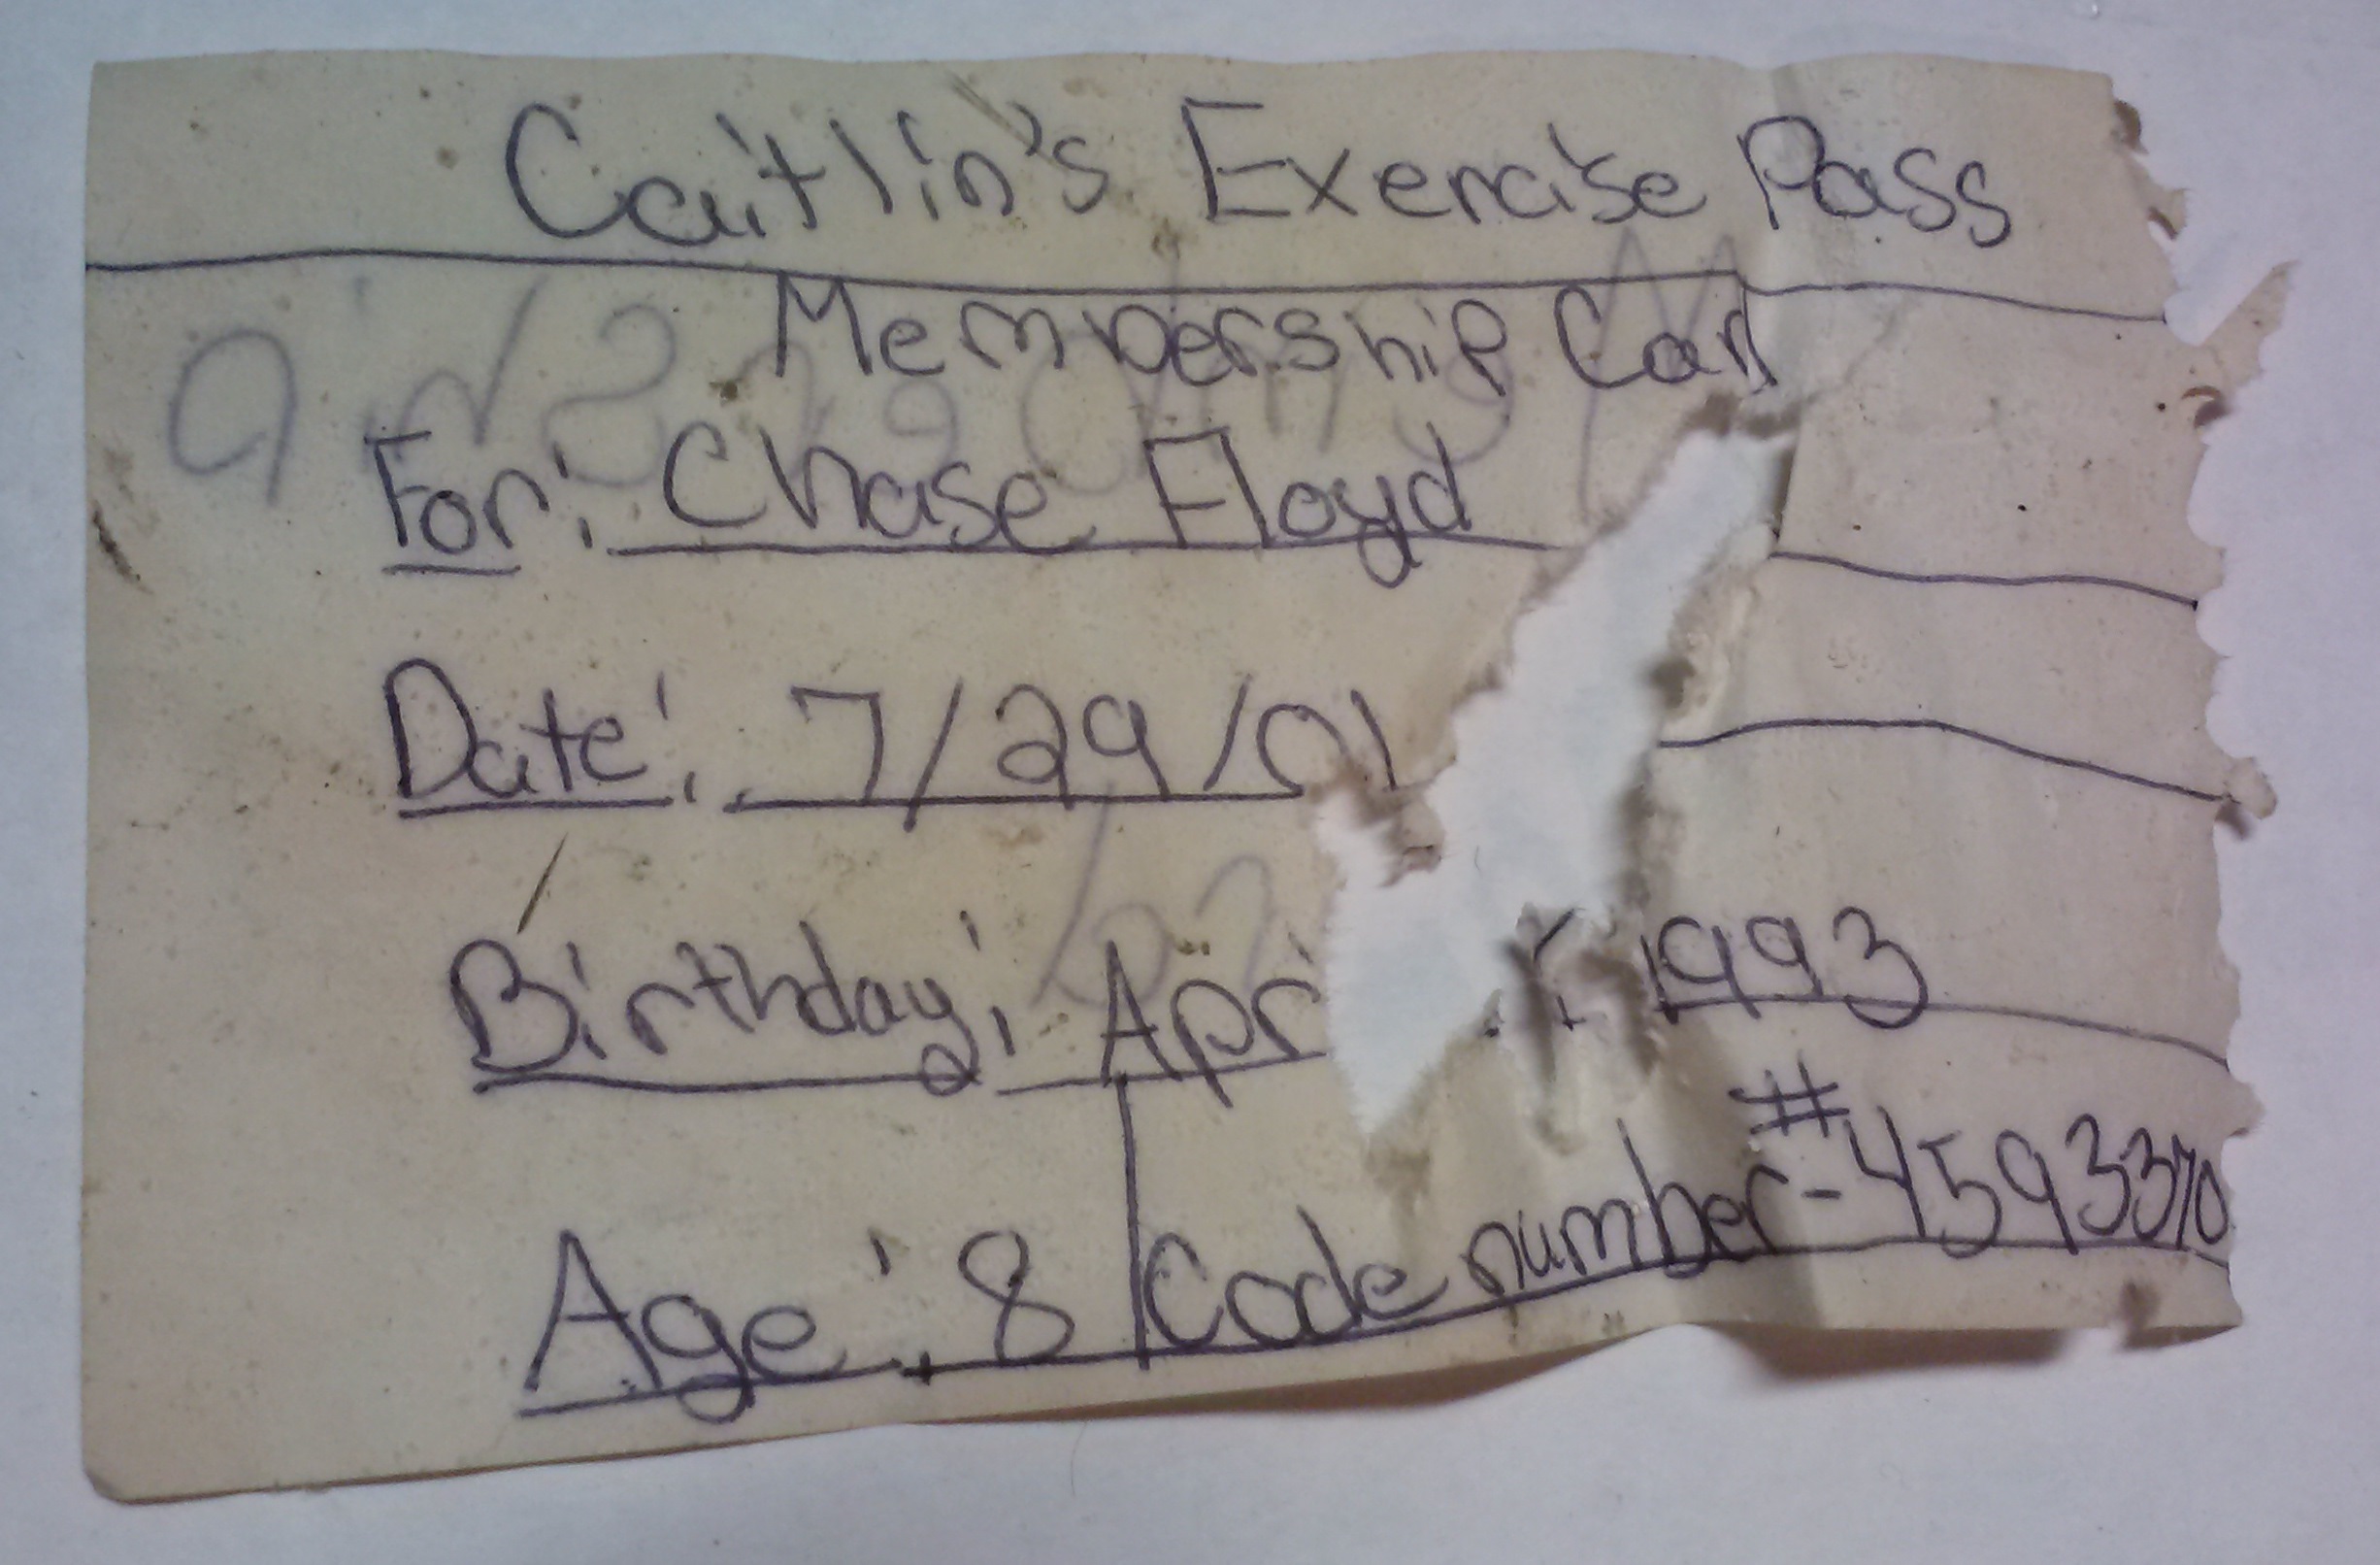 Caitlin's Exercise Pass
Membership Card
For: Chase Floyd
Date: 7/29/01
Birthday: Apri 1993
Age: 8 Code number-#4593370